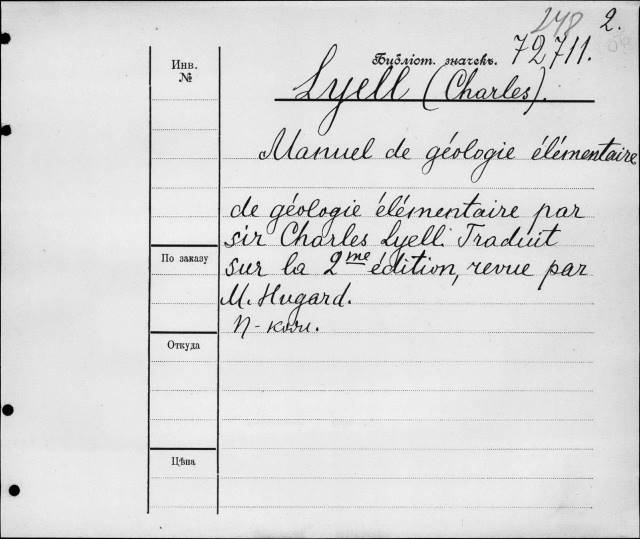 248 2.
Инв.
№
Библіот. значекъ. 72711.
Lyell (Charles).
Manuel de géologie élémentaire
de géologie élémentaire par
sir Charles Lyell. Traduit
sur la 2me édition, revue par
M. Hugard.
По заказу
Откуда
Цѣна